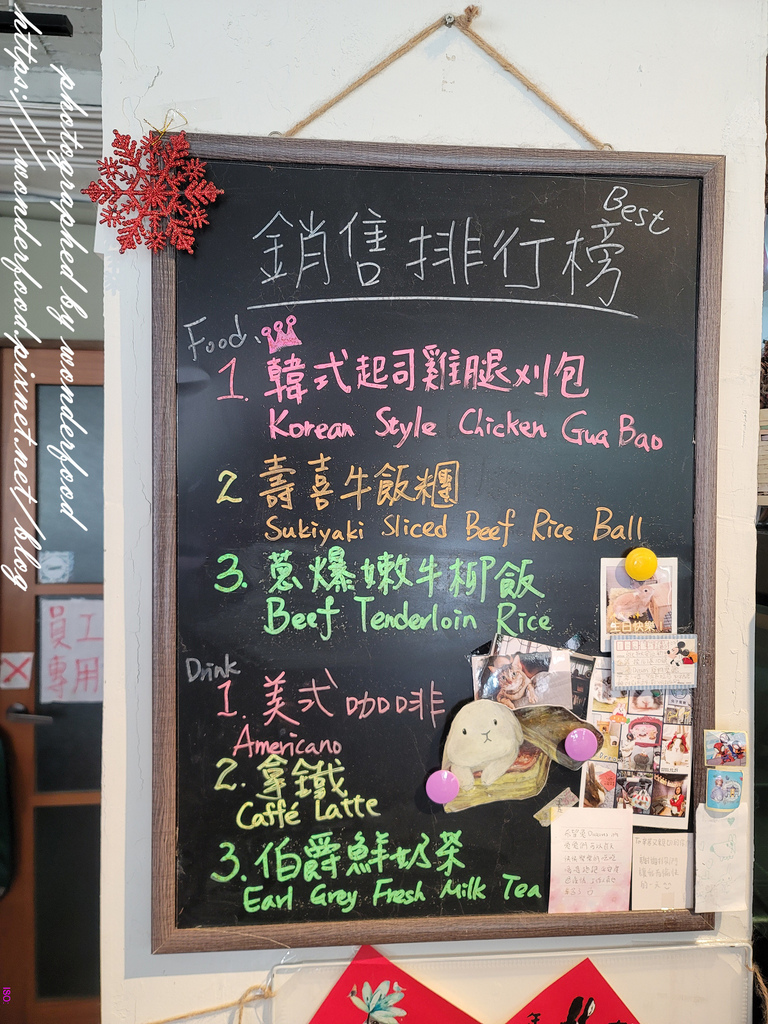 Best
銷售排行榜
Food.
1. 韓式起司雞腿刈包
Korean Style Chicken Gua Bao
2 壽喜牛飯糰
Sukiyaki Sliced Beef Rice Ball
3. 蔥爆嫩牛柳飯
Beef Tenderloin Rice
Drink
1. 美式咖啡
Americano
2. 拿鐵
Caffé Latte
3. 伯爵鮮奶茶
Earl Grey Fresh Milk Tea
生日快樂
員工
專用
photographed by wonderfood
https://wonderfood.pixnet.net/blog
ISO